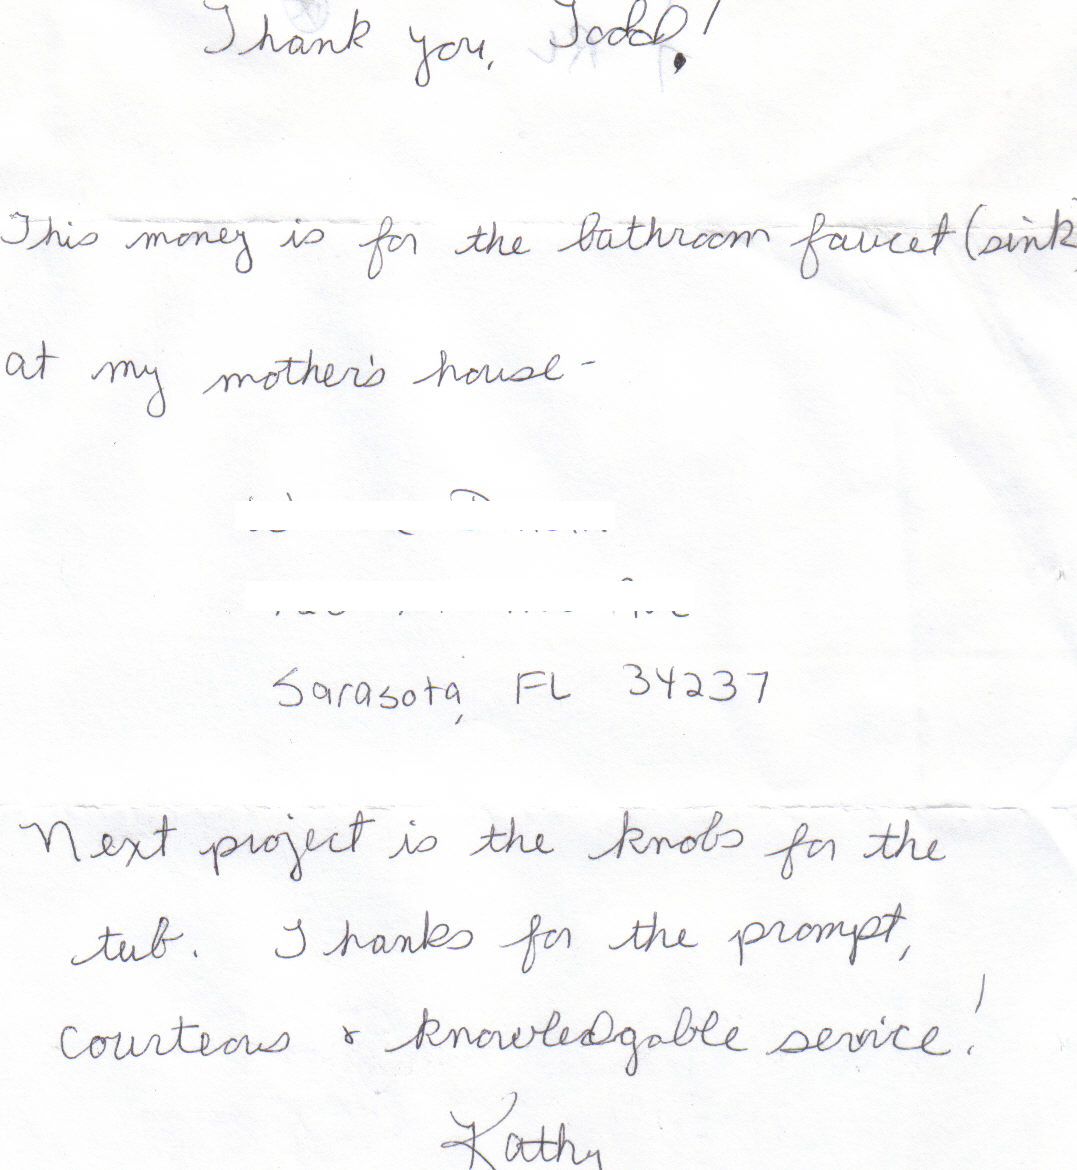 Thank you, Todd!
This money is for the bathroom faucet (sink)
at my mother's house -
Sarasota, FL 34237
Next project is the knobs for the
tub. Thanks for the prompt,
courteous & knowledgable service!
Kathy